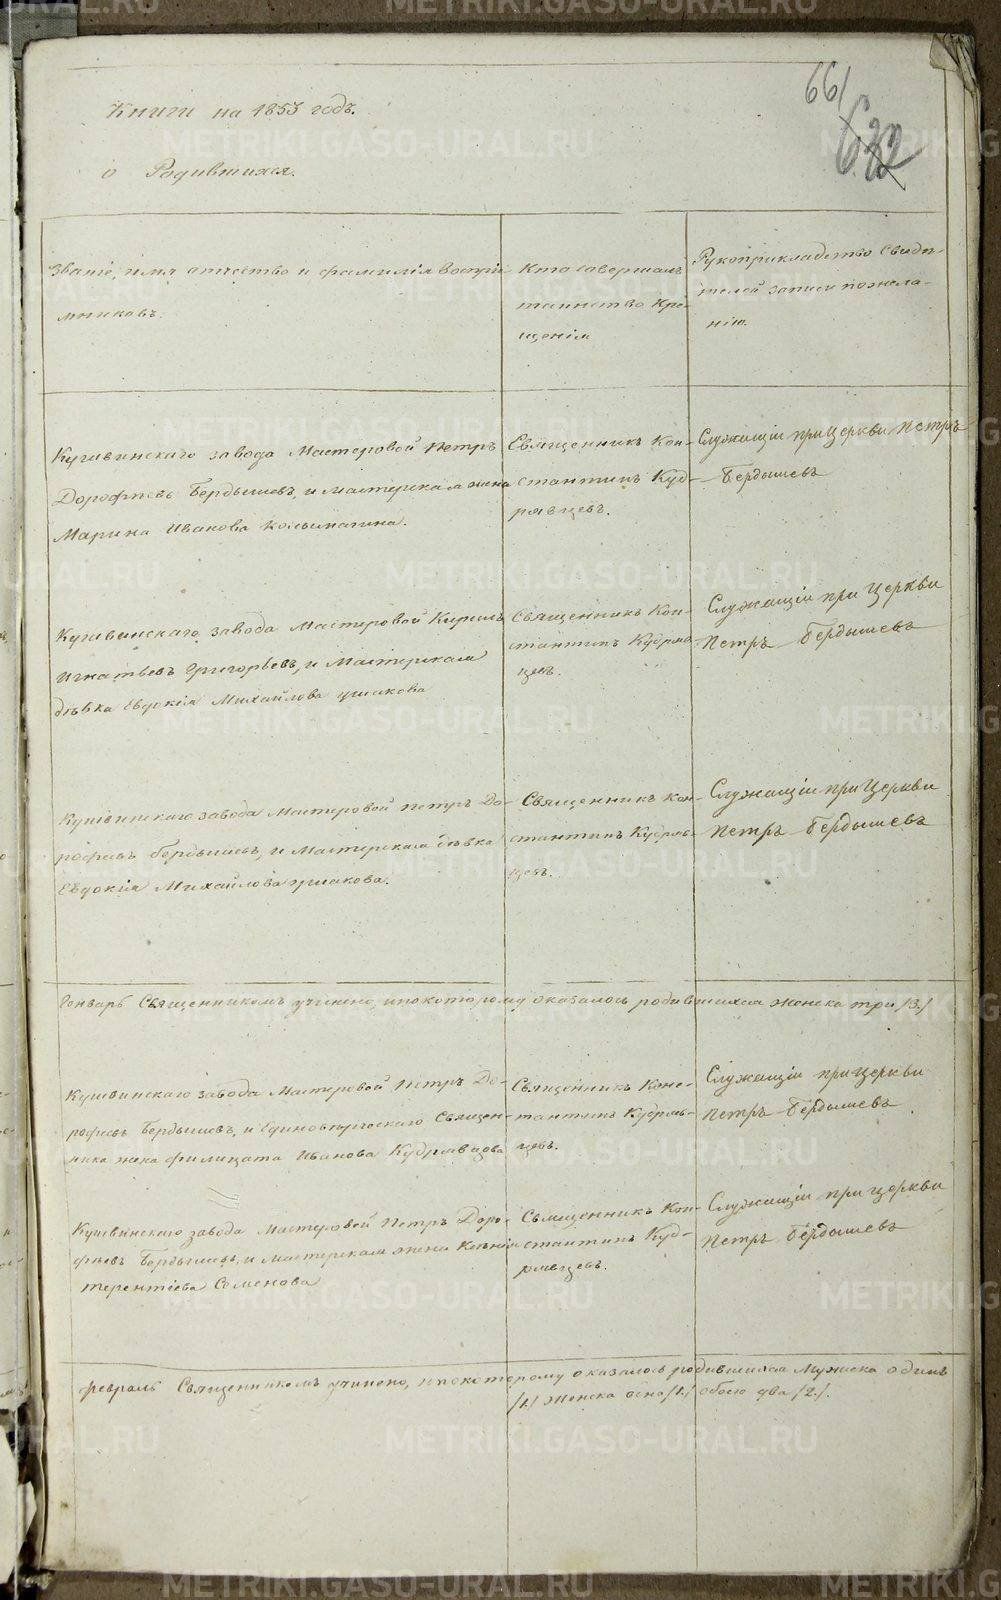 661
632
Книги на 1853 годъ.
о Родившихся.
Званіе, имя отчество и фамилія воспрі-
мниковъ.
Кто совершалъ
таинство кре-
щенія
Рукоприкладство свиде-
телей записи по жела-
нію.
Кушвинскаго завода Мастеровой Петръ
Дорофѣевъ Бердышевъ, и мастерская жена
Марина Иванова Колымагина.
Священникъ Кон-
стантинъ Куд-
рявцевъ.
Служащій при Церкви Петръ
Бердышевъ
Кушвинскаго завода Мастеровой Кирилъ
Игнатьевъ Григорьевъ, и Мастерская
дѣвка Евдокія Михайлова Ушакова
Священникъ Кон-
стантинъ Кудряв
цевъ.
Служащій при Церкви
Петръ Бердышевъ
Кушвинскаго завода Мастеровой Петръ До-
рофѣевъ Бердышевъ, и Мастерская дѣвка
Евдокія Михайлова Ушакова.
Священникъ Кон-
стантинъ Кудряв-
цевъ.
Служащій при Церкви
Петръ Бердышевъ
Генварь Священникомъ учинено, и по которому оказалось родившихся женска три /3./
Кушвинскаго завода Мастеровой Петръ До-
рофѣевъ Бердышевъ, и Единовѣрческаго Священ-
ника жена Филицата Иванова Кудрявцова
Священникъ Конс-
тантинъ Кудряв-
цевъ.
Служащій при Церкви
Петръ Бердышевъ
Кушвинскаго завода Мастеровой Петръ Доро-
фѣевъ Бердышевъ, и мастерская жена Ксенія
Терентіева Семенова
Священникъ Кон-
стантинъ Куд-
рявцевъ.
Служащій при церкви
Петръ Бердышевъ
Февраль Священникомъ учинено, и по которому оказалось родившихся Мужска одинъ
/1./ женска одна /1./ обоего два /2./.
METRIKI.GASO-URAL.RU